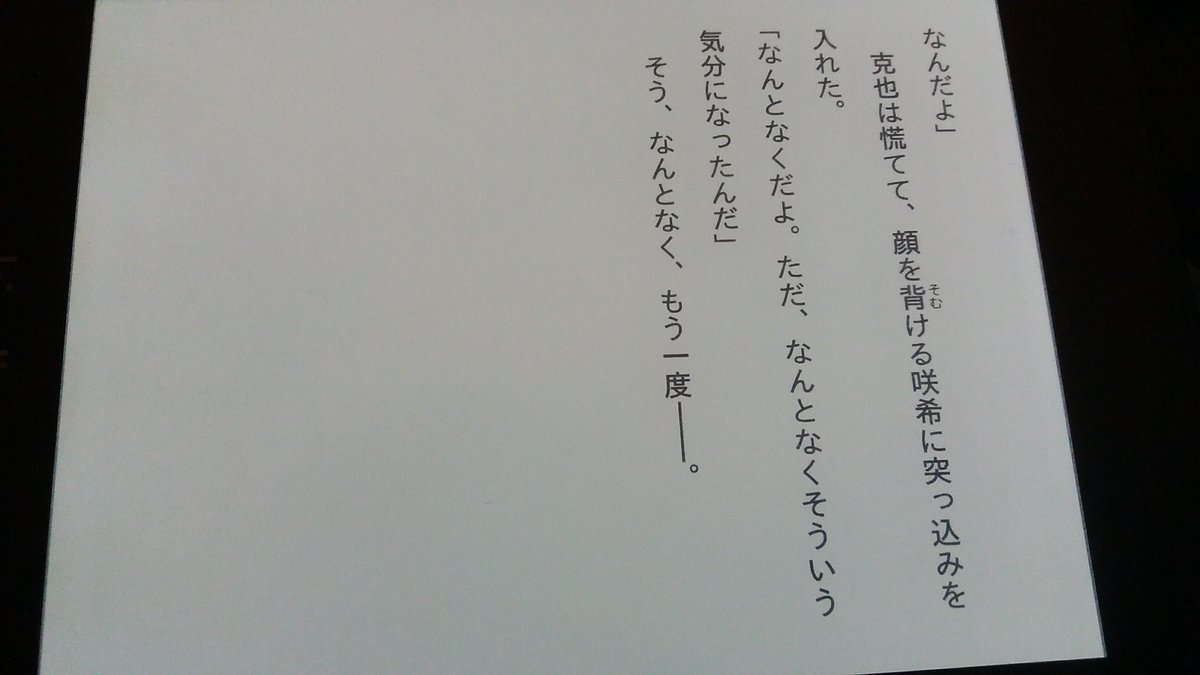 なんだよ」
克也は慌てて、顔を背ける咲希に突っ込みを
そむ
入れた。
「なんとなくだよ。ただ、なんとなくそういう
気分になったんだ」
そう、なんとなく、もう一度――。